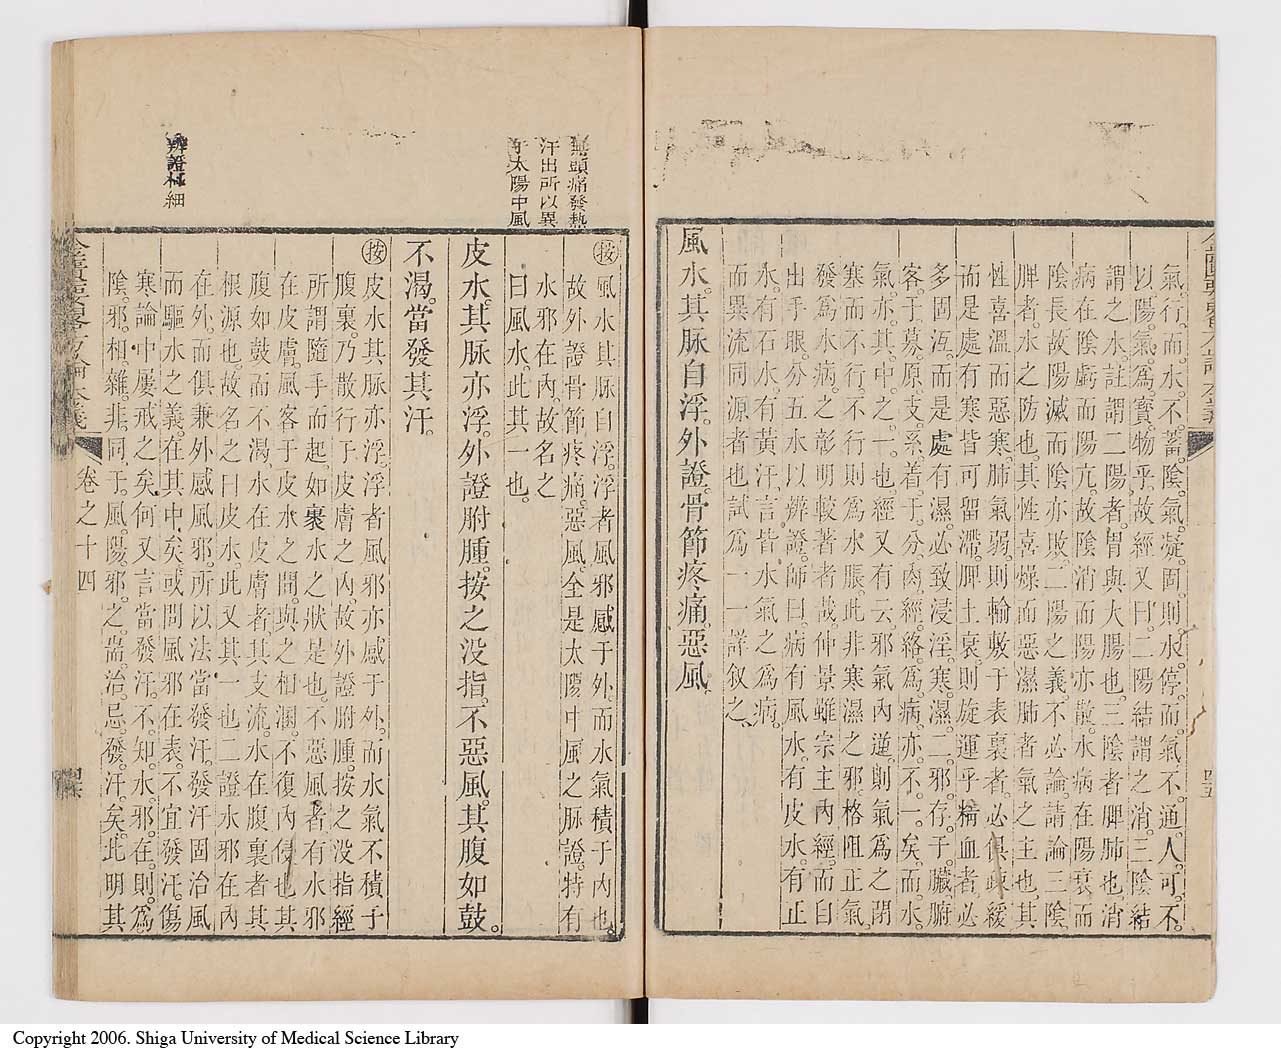 氣。行。而。水。不。蓄。陰。氣。凝。固。則。水。停。而。氣。不。通。人。可。不。
以。陽。氣。爲。寳。物。乎。故經又曰。二陽結謂之消。三陰結
謂之水。註謂二陽者。胃與大腸也。三陰者脾肺也。消
病在陰虧而陽亢。故陰消而陽亦散。水病在陽衰而
陰長。故陽滅而陰亦敗。二陽之義。不必論。請論三陰。
脾者。水之防也。其性喜燥而惡濕。肺者。氣之主也。其
性喜溫而惡寒。肺氣弱。則輸敷于表裏者。必俱疎緩
而是處有寒。皆可留滯。脾土衰。則旋運乎精血者。必
多固沍。而是處有濕。必致浸淫。寒。濕。二。邪。存。于。臟。腑
客。于。募。原。支。系。着。于。分。肉。經。絡。爲。病。亦。不。一。矣。而。水。
氣。亦。其。中。之。一。也。經又有云。邪氣內逆。則氣爲之閉
塞而不行。不行則爲水脹。此非寒濕之邪。格阻正氣。
發爲水病之彰明較著者哉。仲景雖宗主內經。而臼
出手眼。分五水以辨證。師曰。病有風水。有皮水。有正
水。有石水。有黃汗。言皆水氣之爲病。
而異流同源者也。試爲一一詳叙之。
風水。其脉自浮。外證。骨節疼痛。惡風。
四五
無頭痛發熱
汗出所以異
于太陽中風
辨證精細
按風水其脉自浮。浮者風邪感于外。而水氣積于內也。
故外證骨節疼痛。惡風。全是太陽中風之脉證。特有
水邪在內。故名之
曰風水。此其一也。
皮水。其脉亦浮。外證胕腫。按之没指。不惡風。其腹如鼓。
不渴。當發其汗。
按皮水其脉亦浮。浮者風邪亦感于外。而水氣不積于
腹裏。乃散行于皮膚之內。故外證胕腫。按之没指。經
所謂隨手而起。如裹水之狀是也。不惡風者。有水邪
在皮膚。風客于皮水之間。與之相溷。不復內侵也。其
腹如鼓而不渴。水在皮膚者。其支流。水在腹裏者其
根源也。故名之曰皮水。此又其一也。二證水邪在內
在外。而俱兼外感風邪。所以法當發汗。發汗固治風
而驅水之義。在其中矣。或問風邪在表不宜發汗。傷
寒論中屢戒之矣。何又言當發汗。不。知。水。邪。在。則。爲
陰。邪。相。雜。非。同。于。風。陽。邪。之。耑。治。忌。發。汗。矣。此明其
卷之十四
四六